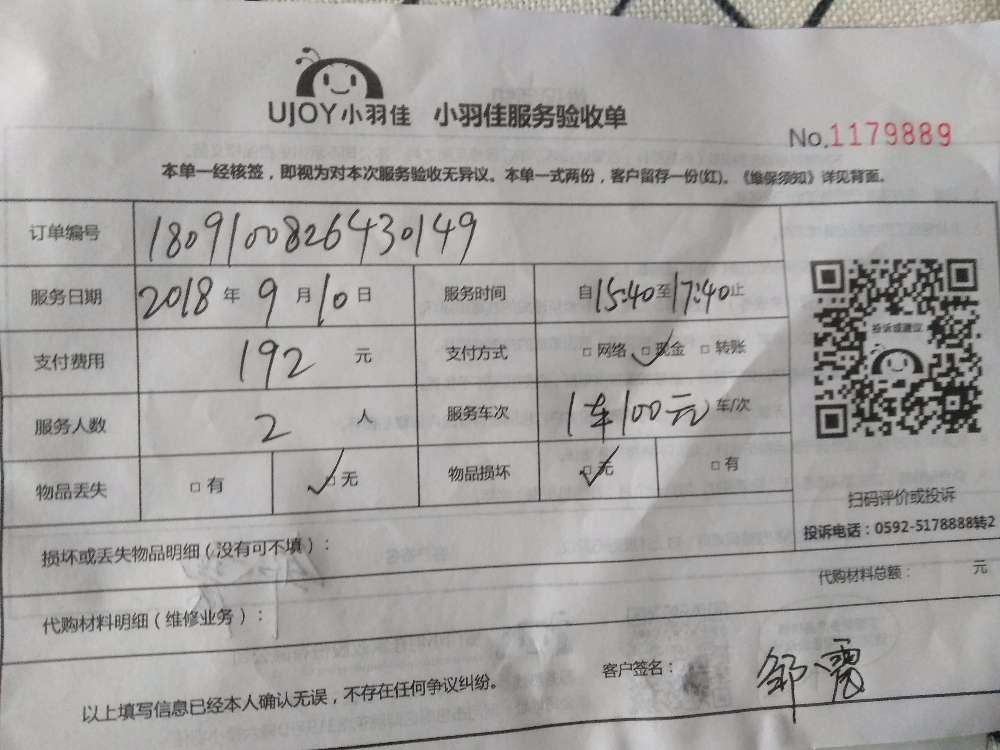 UJOY小羽佳 小羽佳服务验收单
No.1179889
本单一经核签，即视为对本次服务验收无异议。本单一式两份，客户留存一份(红)。《维保须知》详见背面。
订单编号 180910082643​0149
服务日期 2018年9月10日 服务时间 自15:40至17:40止
投诉或建议
支付费用 192元 支付方式 □网络 □现金 □转账
服务人数 2人 服务车次 1车100元 车/次
物品丢失 □有 □无 物品损坏 □无 □有
扫码评价或投诉
投诉电话：0592-5178888转2
损坏或丢失物品明细（没有可不填）：
代购材料明细（维修业务）： 代购材料总额： 元
以上填写信息已经本人确认无误，不存在任何争议纠纷。 客户签名： 邹震